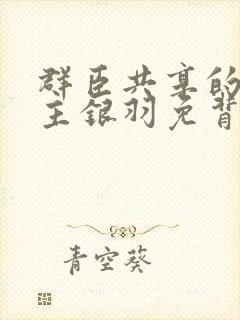 群臣共享的
主银羽免背
青空葵